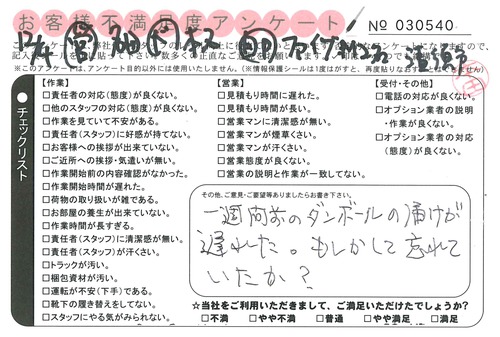 お客様不満足度アンケート
No 030540
(※このアンケートは、アンケート目的以外には使用いたしません。)(※情報保護シールは1度はがすと、再度貼りなおすことはできません)
チェックリスト
【作業】
□責任者の対応(態度)が良くない。
□他のスタッフの対応(態度)が良くない。
□作業を見ていて不安がある。
□責任者(スタッフ)に好感が持てない。
□お客様への挨拶が出来ていない。
□ご近所への挨拶・気遣いが無い。
□作業開始前の内容確認がなかった。
□作業開始時間が遅れた。
□荷物の取り扱いが雑である。
□お部屋の養生が出来ていない。
□作業時間が長すぎる。
□責任者(スタッフ)に清潔感が無い。
□責任者(スタッフ)が汗くさい。
□トラックが汚い。
□梱包資材が汚い。
□運転が不安(下手)である。
□靴下の履き替えをしてない。
□スタッフにやる気がみられない。
【営業】
□見積もり時間に遅れた。
□見積もり時間が長い。
□営業マンに清潔感が無い。
□営業マンが煙草くさい。
□営業マンが汗くさい。
□営業態度が良くない。
□営業の説明と作業が一致してない。
【受付・その他】
□電話の対応が良くない。
□オプション業者の説明
・作業が良くない。
□オプション業者の対応
(態度)が良くない。
その他、ご意見・ご要望等ありましたらお書き下さい。
一週間前のダンボールの届けが
遅れた。もしかして忘れて
いたか?
☆当社をご利用いただきまして、ご満足いただけたでしょうか?
□不満 □やや不満 □普通 □やや満足 □満足